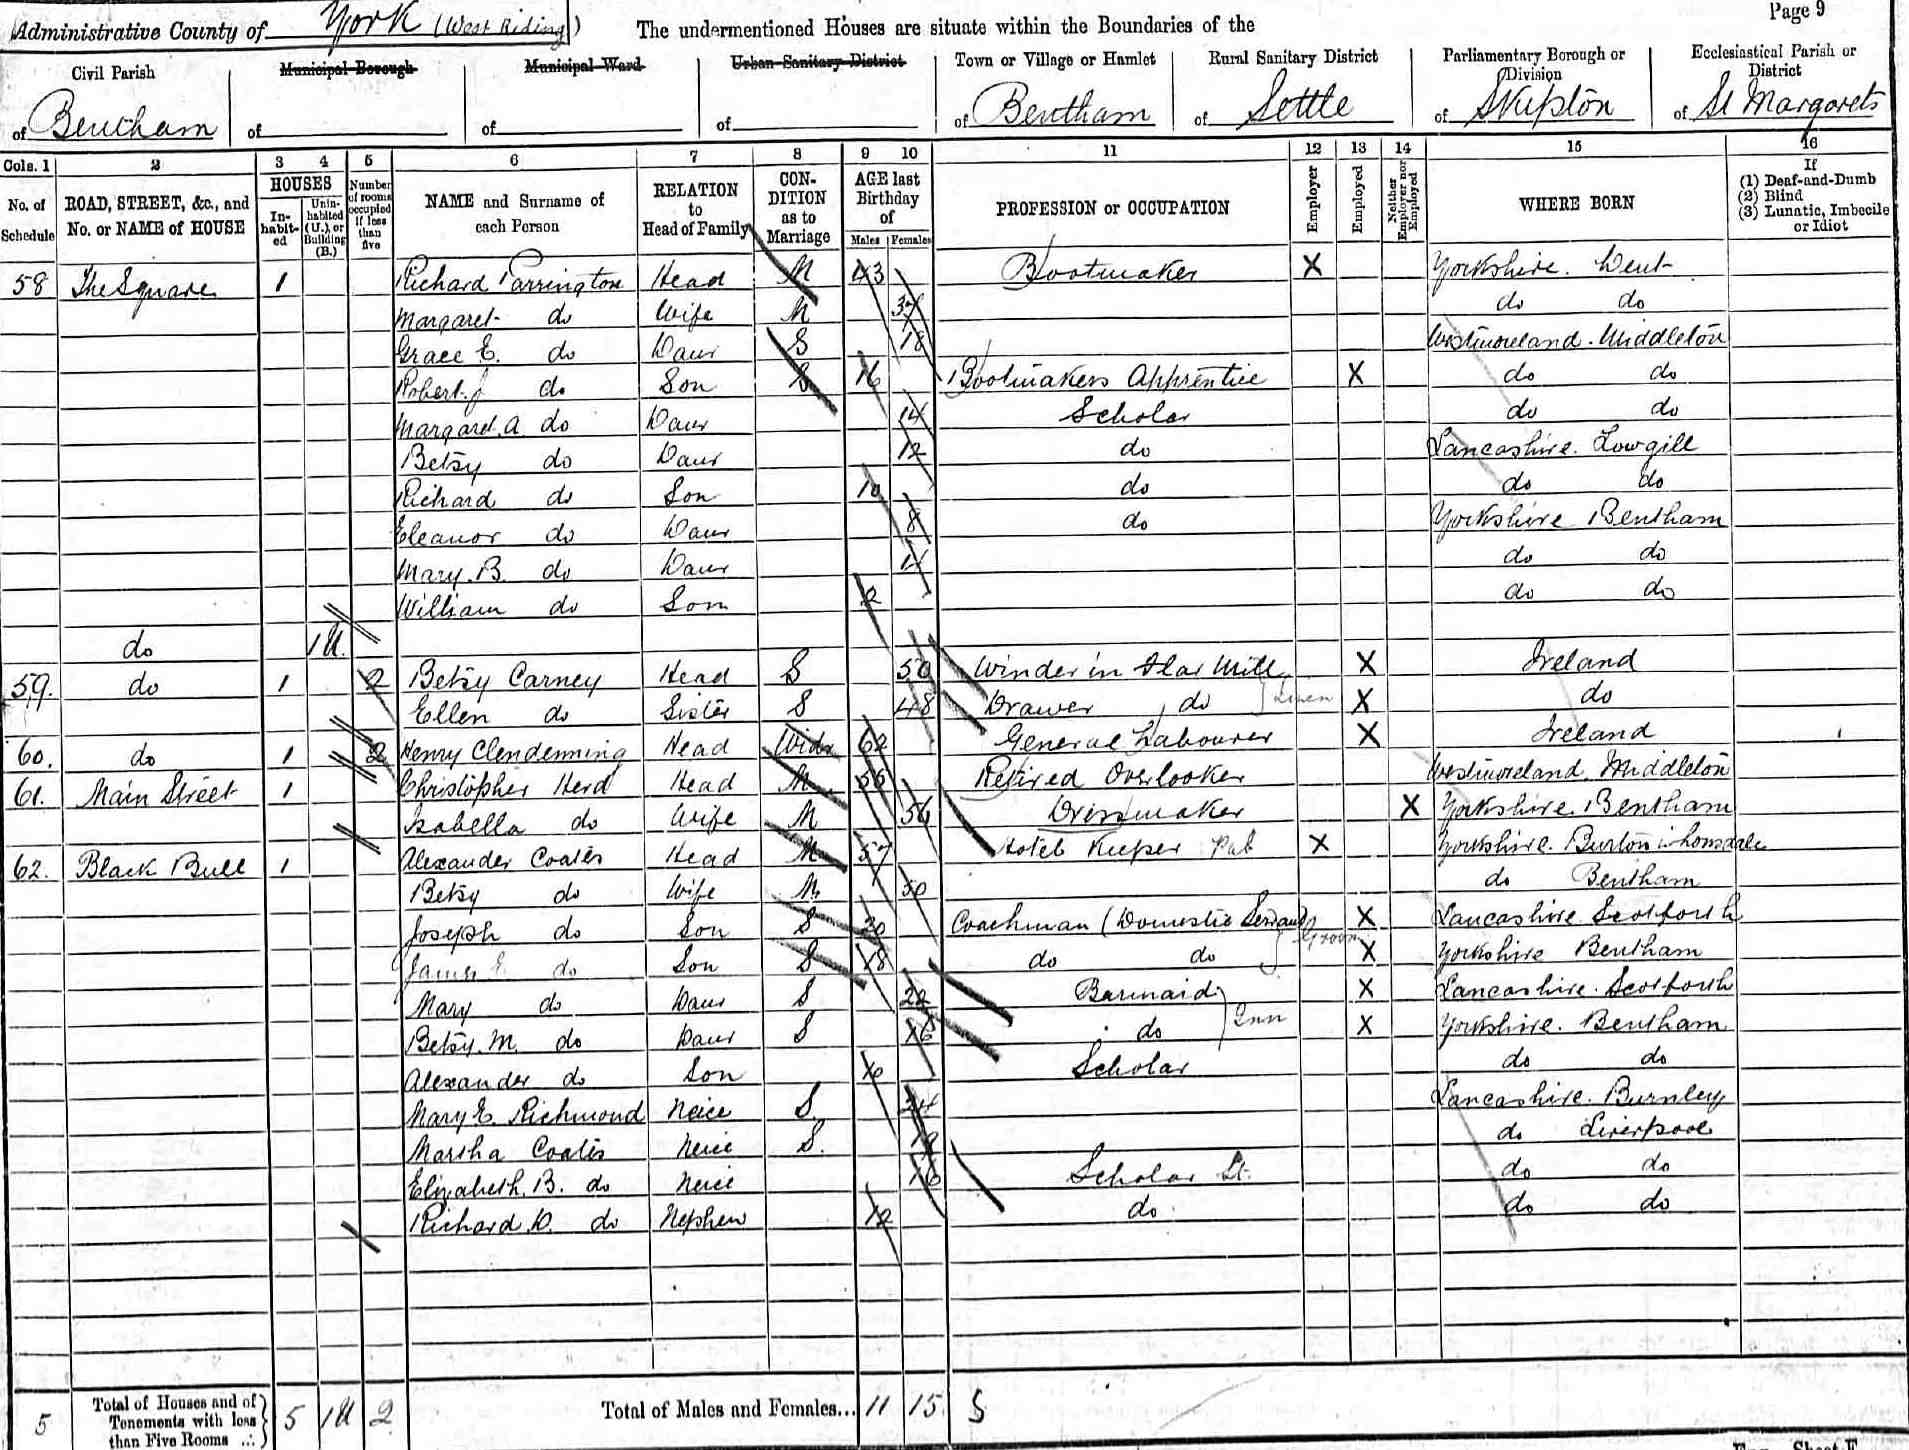 Administrative County of York (West Riding) The undermentioned Houses are situate within the Boundaries of the Page 9
Civil Parish Municipal Borough Municipal Ward Urban Sanitary District Town or Village or Hamlet Rural Sanitary District Parliamentary Borough or Division Ecclesiastical Parish or District
of Bentham of of of of Bentham of Settle of Skipton of St Margarets
Cols. 1 2 3 4 5 6 7 8 9 10 11 12 13 14 15 16
No. of Schedule ROAD, STREET, &c., and No. or NAME of HOUSE HOUSES Inhabited Uninhabited (U.), or Building (B.) Number of rooms occupied if less than five NAME and Surname of each Person RELATION to Head of Family CONDITION as to Marriage AGE last Birthday of Males Females PROFESSION or OCCUPATION Employer Employed Neither Employer nor Employed WHERE BORN If (1) Deaf-and-Dumb (2) Blind (3) Lunatic, Imbecile or Idiot
58 The Square 1 Richard Parrington Head M 43 Bootmaker X Yorkshire. Dent
Margaret do Wife M 37 do do
Grace E. do Daur S 18 Westmoreland. Middleton
Robert J do Son S 16 Bootmakers Apprentice X do do
Margaret A do Daur 14 Scholar do do
Betsy do Daur 12 do Lancashire. Lowgill
Richard do Son 10 do do do
Eleanor do Daur 8 do Yorkshire Bentham
Mary. B. do Daur 4 do do
William do Son 2 do do
do 1 U.
59. do 1 2 Betsy Carney Head S 50 Winder in Flax Mill X Ireland
Ellen do Sister S 48 Drawer do Linen X do
60. do 1 2 Henry Clendenning Head Widr 62 General Labourer X Ireland
61. Main Street 1 Christopher Herd Head M 55 Retired Overlooker Westmoreland. Middleton
Isabella do Wife M 56 Dressmaker X Yorkshire. Bentham
62. Black Bull 1 Alexander Coates Head M 57 Hotel Keeper Pub X Yorkshire. Burton in Lonsdale
Betsy do Wife M 50 do Bentham
Joseph do Son S 20 Coachman (Domestic Servant) X Lancashire Scotforth
James E do Son S 18 do do Groom X Yorkshire Bentham
Mary do Daur S 22 Barmaid X Lancashire. Scotforth
Betsy. M. do Daur S 16 do Inn X Yorkshire. Bentham
Alexander do Son 10 Scholar do do
Mary E. Richmond Neice S. 24 Lancashire. Burnley
Martha Coates Neice S. do Liverpool
Elizabeth. B. do Neice 16 Scholar do do
Richard. D. do Nephew 12 do do do
5 Total of Houses and of Tenements with less than Five Rooms 5 1U 2 Total of Males and Females... 11 15 5
Sheet E